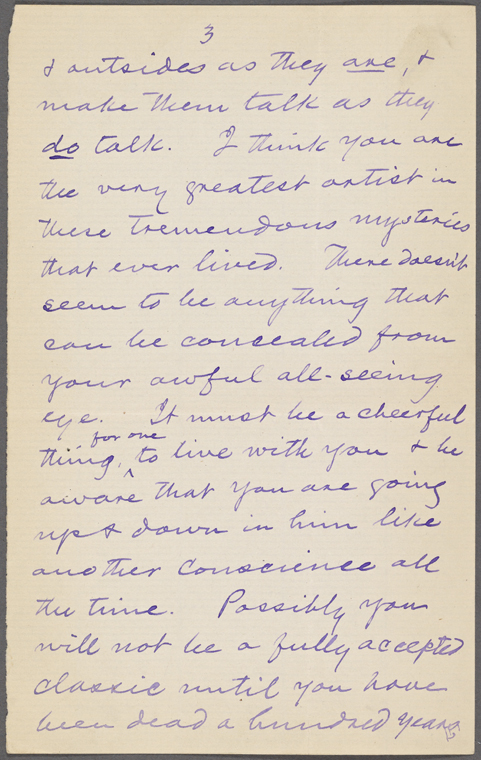 3
& outsides as they are, &
make them talk as they
do talk. I think you are
the very greatest artist in
these tremendous mysteries
that ever lived. There doesn't
seem to be anything that
can be concealed from
your awful all-seeing
eye. It must be a cheerful
for one
thing, ^ to live with you & be
aware that you are going
up & down in him like
another conscience all
the time. Possibly you
will not be a fully accepted
classic until you have
been dead a hundred years